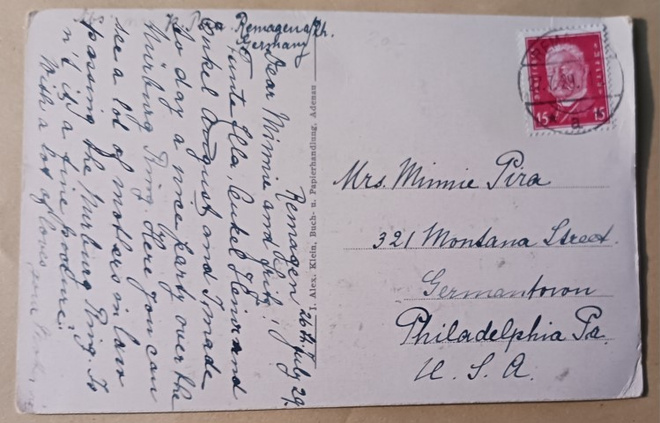 Remagen a/Rh.
Germany
Remagen 26th July 29.
Dear Minnie and Fritz!
Tante Ella, Onkel Heinr and
Onkel August and I made
to day a nice party over the
Nürburg Ring. Here you can
see a lot of mothers in law
passing the Nürburg Ring. Is
n't it a fine
With a lot of loves your
I. Alex. Klein, Buch- u. Papierhandlung, Adenau
DEUTSCHES REICH
15 15
Mrs. Minnie Pira
321 Montana Street.
Germantown
Philadelphia Pa.
U. S. A.